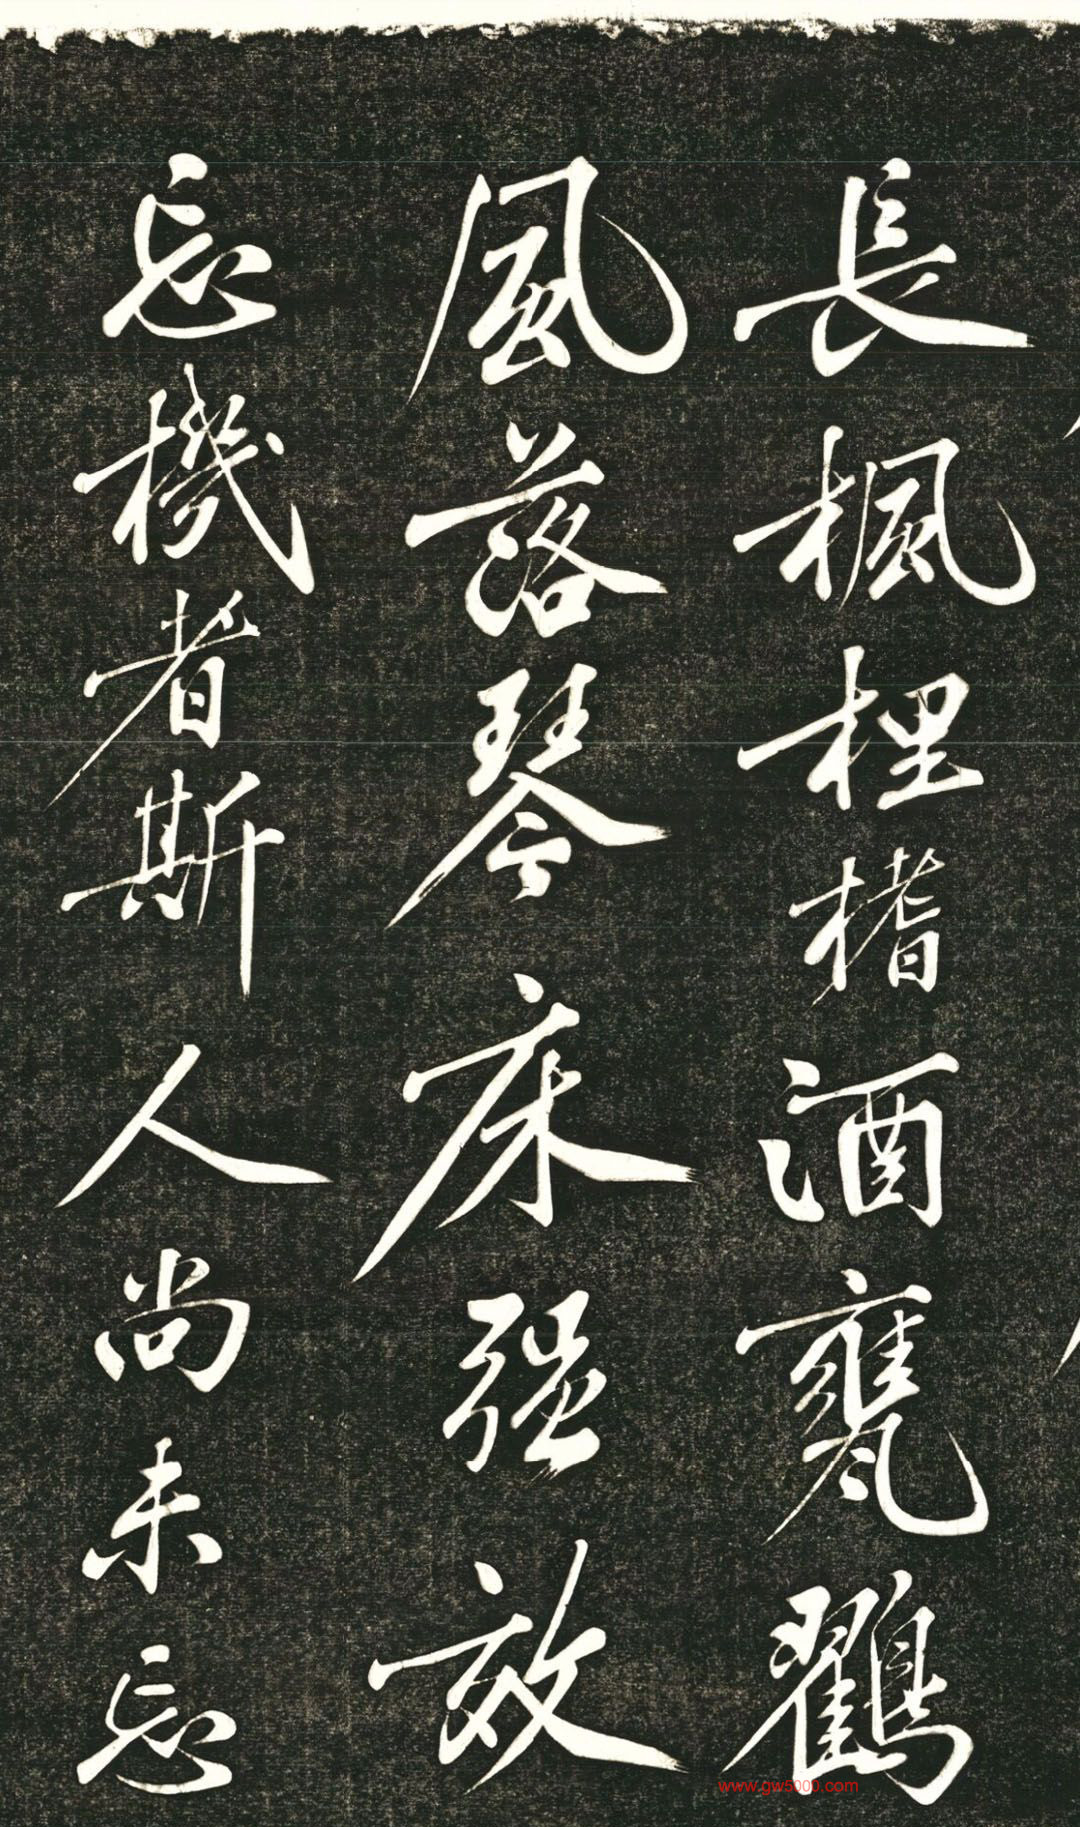 長楓梩榰酒甕鸐
風落琴床强效
忘機者斯人尚未忘
www.gw5000.com